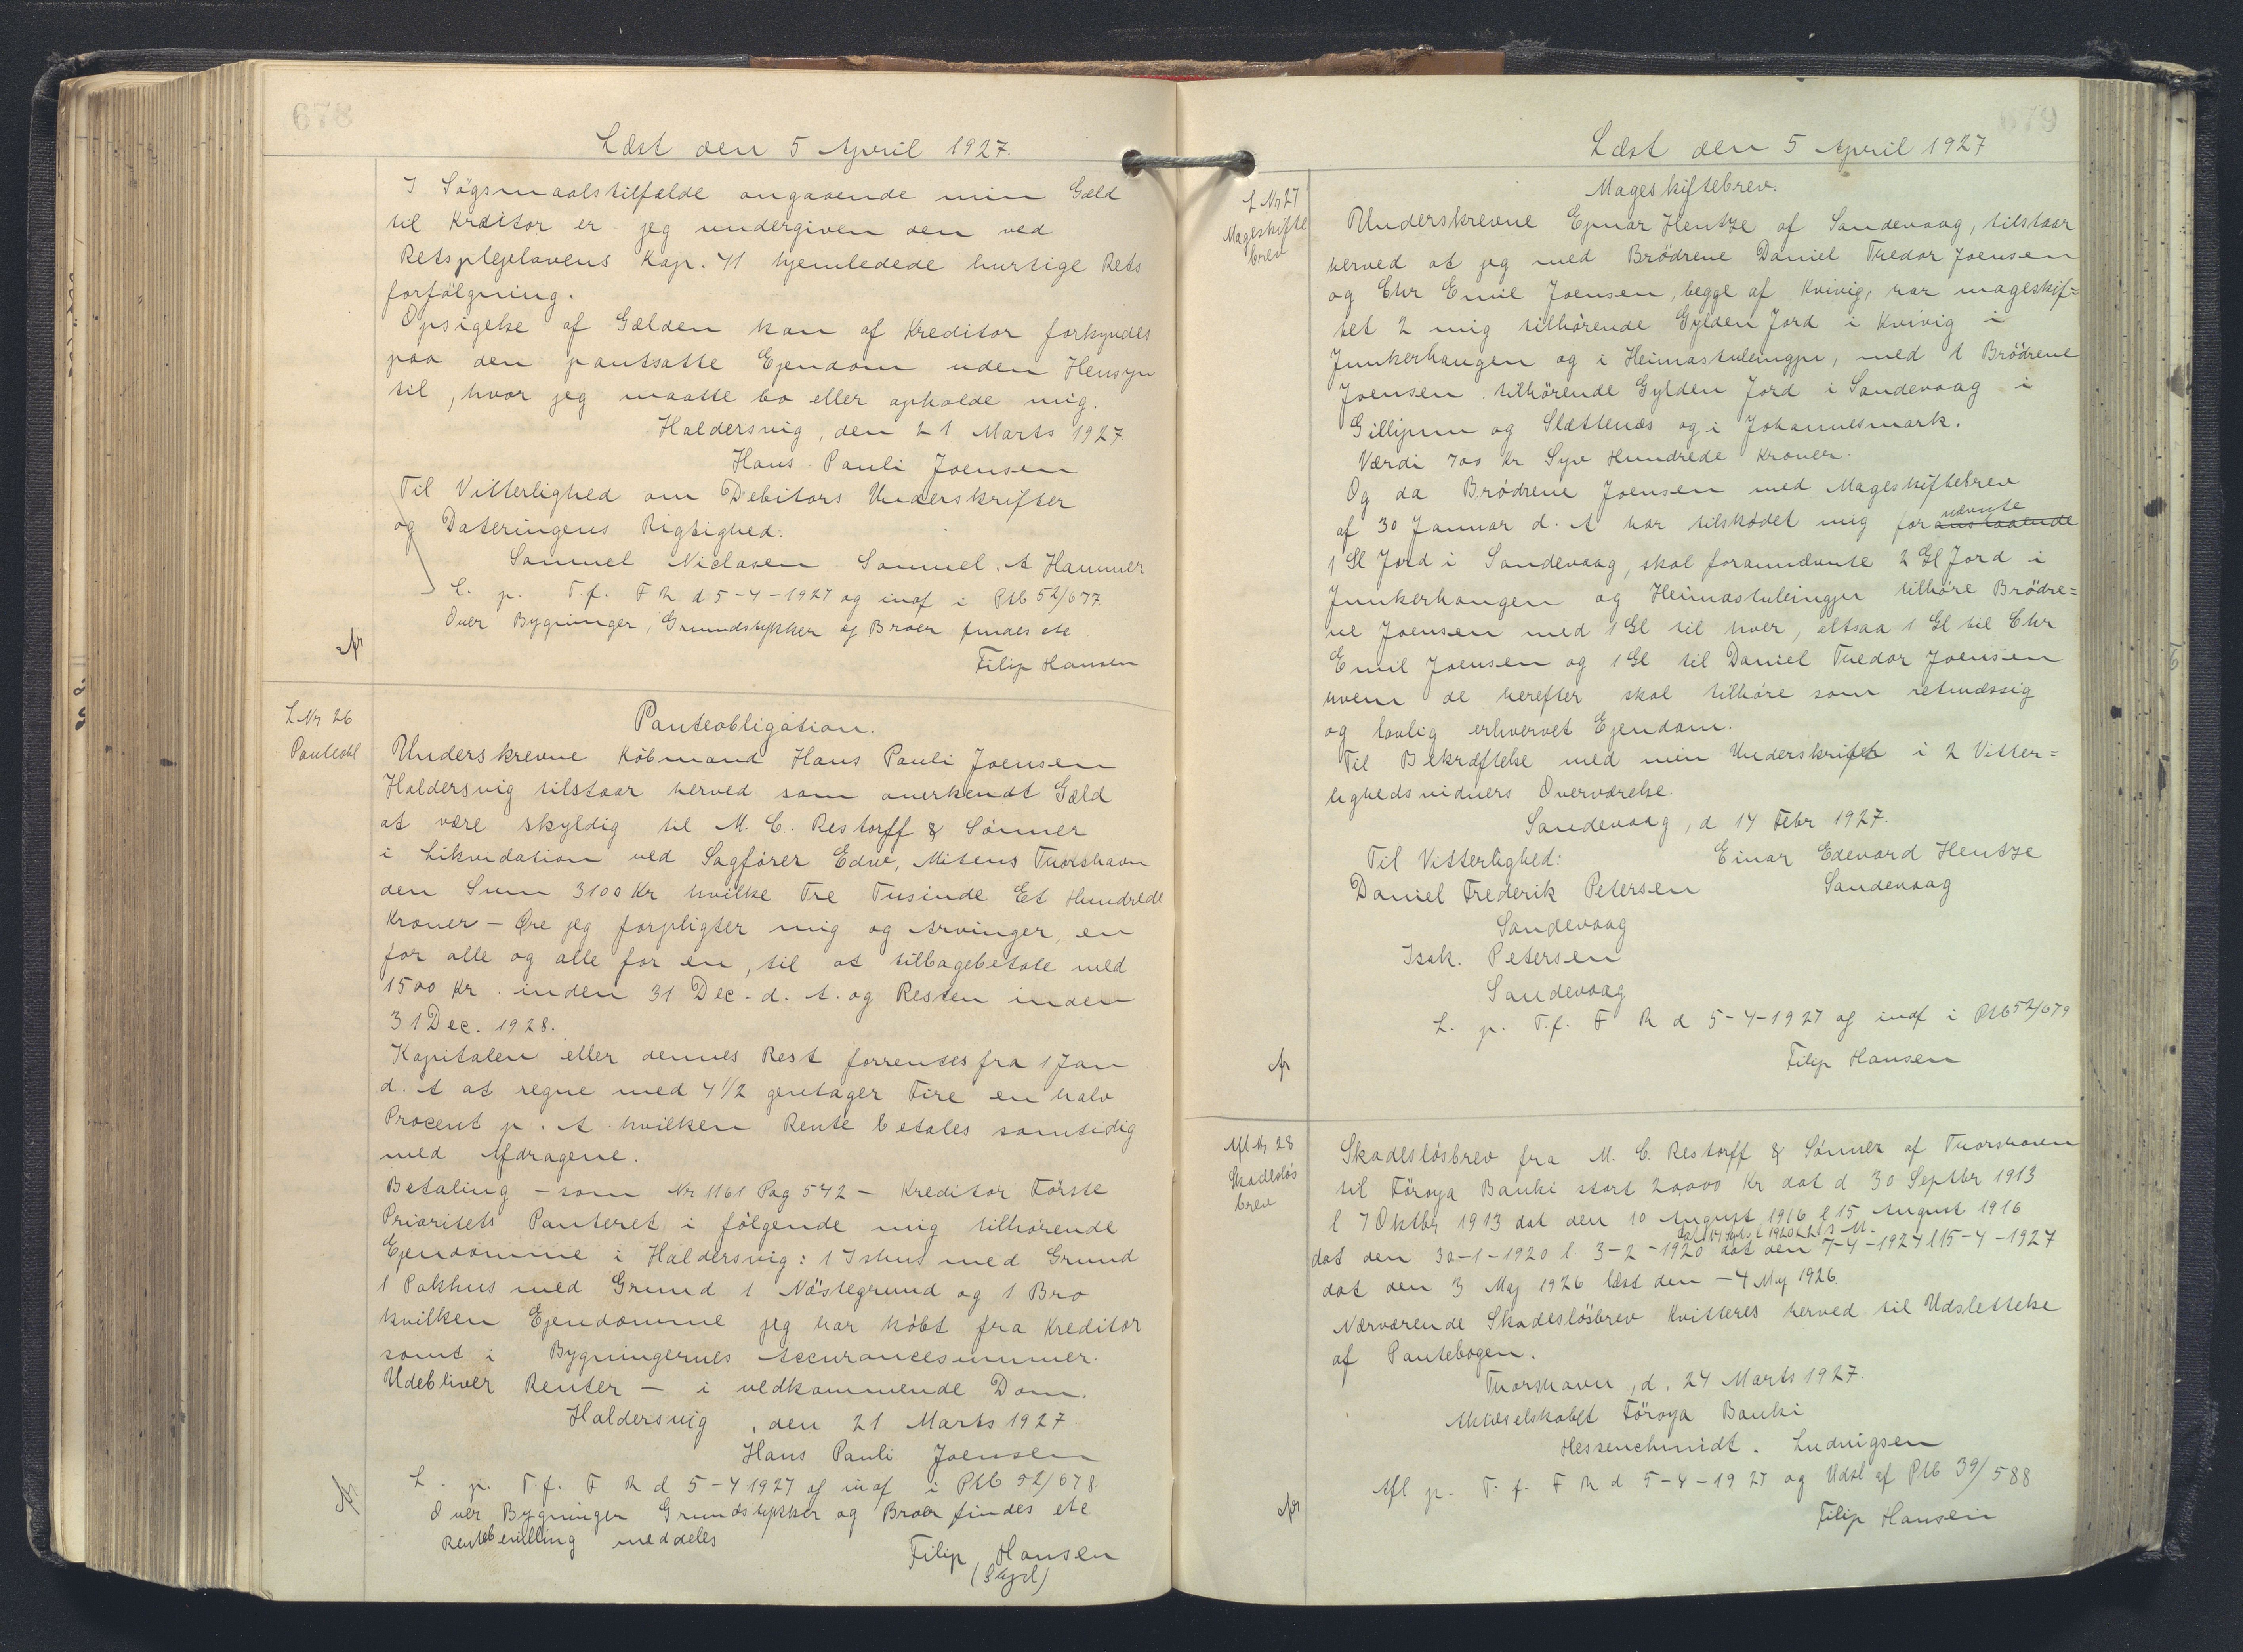 678
Læst den 5 April 1927.
I Sögsmaalstilfælde angaaende min Gæld
til Kreditor er jeg undergiven den ved
Retsplejelovens Kap. 41 hjemledede hurtige Rets
forfölgning.
Opsigelse af Gælden kan af Kreditor forkyndes
paa den pantsatte Ejendom uden Hensyn
til, hvor jeg maatte bo eller opholde mig.
Haldersvig, den 21 Marts 1927
Hans Pauli Joensen
Til Vitterlighed om Debitors Underskrifter
og Dateringens Rigtighed.
Samuel Niclasen Samuel. A Hammer
L. p. T. f. F R d 5-4-1927 og indf i Ptb 52/677
Over Bygninger, Grundstykker og Broer findes etc
Filip Hansen
L Nr 26
Panteobl
Panteobligation.
Underskrevne Købmand Hans Pauli Joensen
Haldersvig tilstaar herved som anerkendt Gæld
at være skyldig til M. C. Restorff & Sønner
i Likvidation ved Sagfører Edw. Mitens Thorshavn
den Sum 3100 Kr hvilke Tre Tusinde Et Hundrede
Kroner – Øre jeg forpligter mig og Arvinger, en
for alle og alle for en, til at tilbagebetale med
1500 Kr. inden 31 Dec. d. A. og Resten inden
31 Dec. 1928.
Kapitalen eller dennes Rest forrentes fra 1 Jan
d. A at regne med 4 1/2 gentager Fire en halv
Procent p. A hvilken Rente betales samtidig
med Afdragene.
Betaling – som Nr 1161 Pag 542 – Kreditor Første
Prioritets Panteret i følgende mig tilhørende
Ejendomme i Haldersvig: 1 Ishus med Grund
1 Pakhus med Grund 1 Nöstegrund og 1 Bro
hvilken Ejendomme jeg har købt fra Kreditor
samt i Bygningernes Accurancesummer.
Udebliver Renter – i vedkommende Dom.
Haldersvig, den 21 Marts 1927.
Hans Pauli Joensen
L. p. T. f. F R d 5-4 1927 og indf i Ptb 52/678
Over Bygninger Grundstykker og Broer findes etc
Rentebevilling meddeles
Filip Hansen
679
Læst den 5 April 1927
L Nr 27
Mageskifte
brev
Mageskiftebrev.
Underskrevne Ejnar Hentze af Sandevaag, tilstaar
herved at jeg med Brödrene Daniel Thedor Joensen
og Chr Emil Joensen, begge af Kvivig, har mageskif=
tet 2 mig tilhørende Gylden Jord i Kvivig i
Junkerhaugen og i Heimastuleingju, med 1 Brödrene
Joensen tilhørende Gylden Jord i Sandevaag i
Gillijunn og Slættenæs og i Johannesmark.
Værdi 700 Kr Syv Hundrede Kroner.
Og da Brødrene Joensen med Mageskiftebrev
af 30 Januar d. A har tilskødet mig foranstaaende nævnte
1 Gl Jord i Sandevaag, skal forannævnte 2 Gl Jord i
Junkerhangen og Heimastuleingju tilhøre Brödre=
ne Joensen med 1 Gl til hver, altsaa 1 Gl til Chr
Emil Joensen og 1 Gl til Daniel Thedor Joensen
hvem de herefter skal tilhøre som retmæssig
og lovlig erhvervet Ejendom.
Til Bekræftelse med min Underskrift i 2 Vitter=
lighedsvidners Overværelse.
Sandevaag, d 14 Febr 1927.
Til Vitterlighed: Einar Edevard Hentze
Daniel Frederik Petersen Sandevaag
Sandevaag
Isak. Petersen
Sandevaag
L. p. T. f. F R d 5-4-1927 og indf i Ptb 52/679
Filip Hansen
Afl Nr 28
Skadesløs
brev
Skadesløsbrev fra M. C. Restorff & Sønner af Thorshavn
til Föroya Banki stort 20,000 Kr dat d 30 Septbr 1913
l 7 Oktbr 1913 dat den 10 August 1916 l 15 August 1916
dat den 30-1-1920 l 3-2-1920 dat den 7-4-1927 l 15-4-1927
dat den 3 Maj 1926 læst den -4 Maj 1926
Nærværende Skadesløsbrev Kvitteres herved til Udslettelse
af Pantebogen.
Thorshavn, d. 24 Marts 1927.
Aktieselskabet Föroya Banki
Hessenchmidt. Ludvigsen
Afl p. T. f. F R d 5-4-1927 og Udsl af Ptb 39/588
Filip Hansen